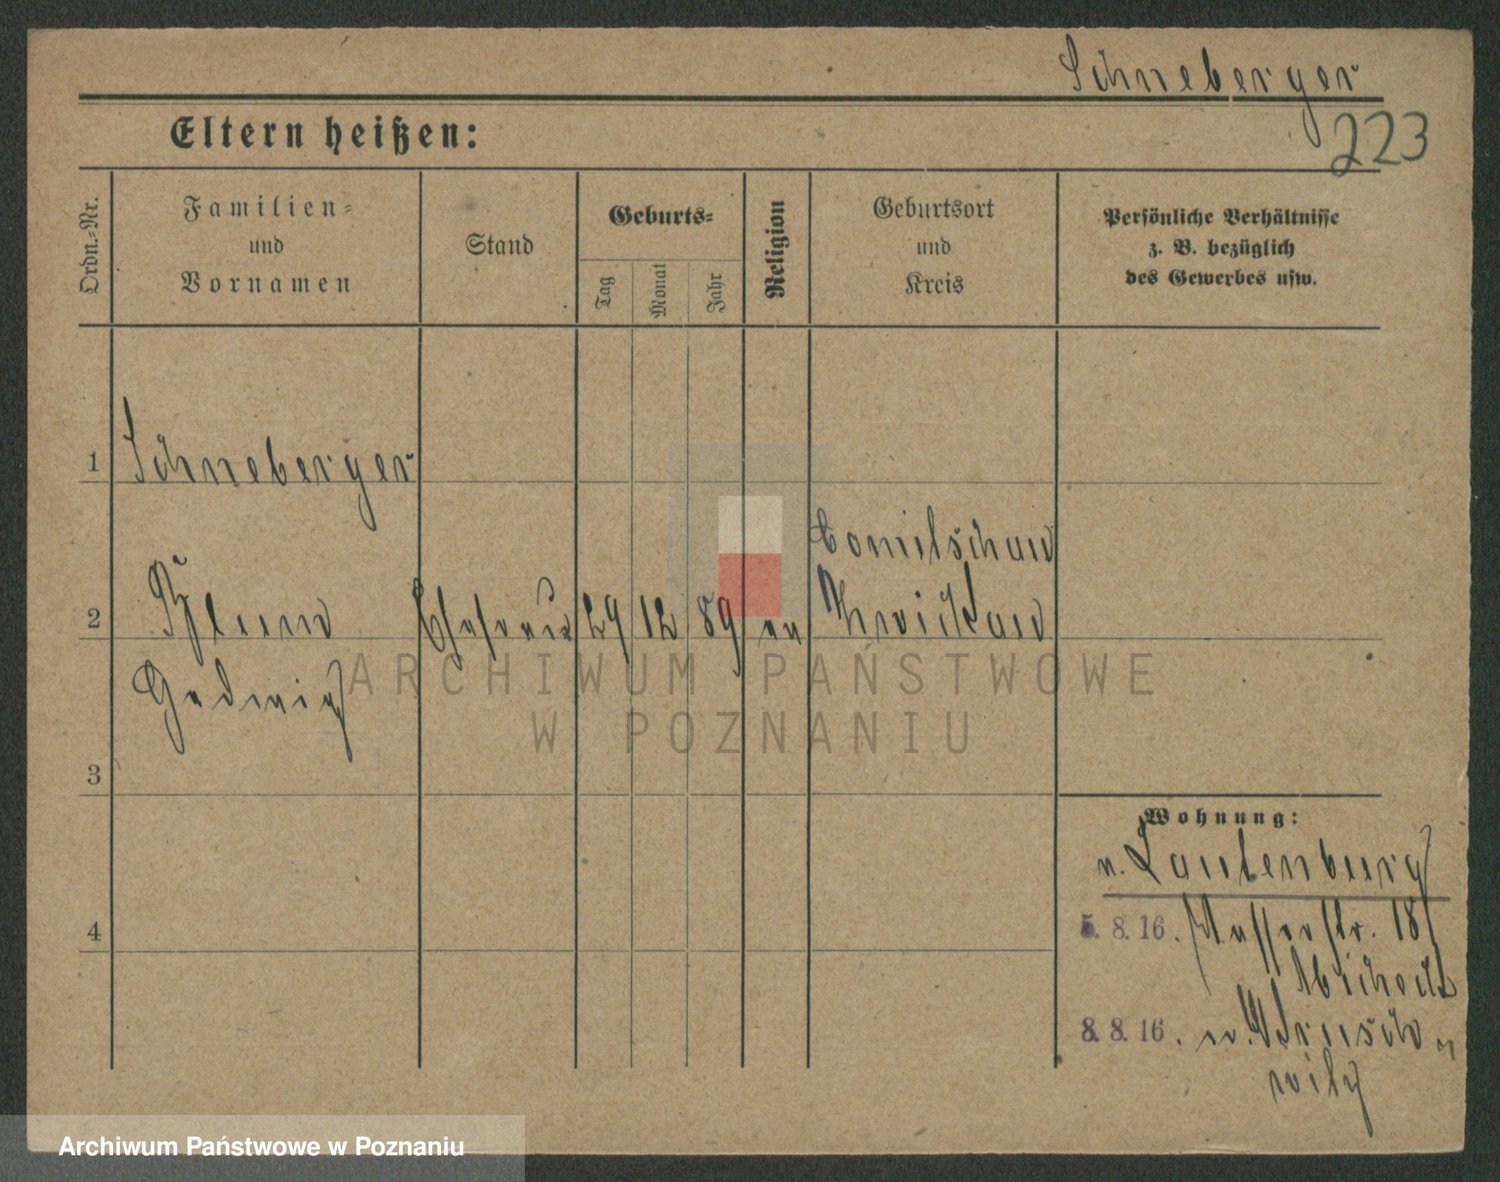 Schneberger
223
Eltern heißen:
Ordn.-Nr.
Familien-
und
Vornamen
Stand
Geburts-
Tag
Monat
Jahr
Religion
Geburtsort
und
Kreis
Persönliche Verhältnisse
z. B. bezüglich
des Gewerbes usw.
1 Schneberger
2 Ehefrau 29 12 89 ev Zwickau
Hedwig
3
4
Wohnung:
v. Lautenburg
5. 8. 16. Wasserstr. 18
8. 8. 16. n.
ARCHIWUM PAŃSTWOWE
W POZNANIU
Archiwum Państwowe w Poznaniu